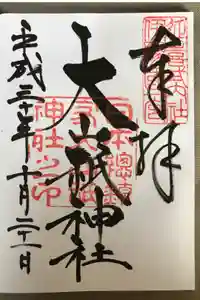 奉拝
大山祇神社
日本總鎮
守大山祇
神社之印
平成三十年十月二十一日